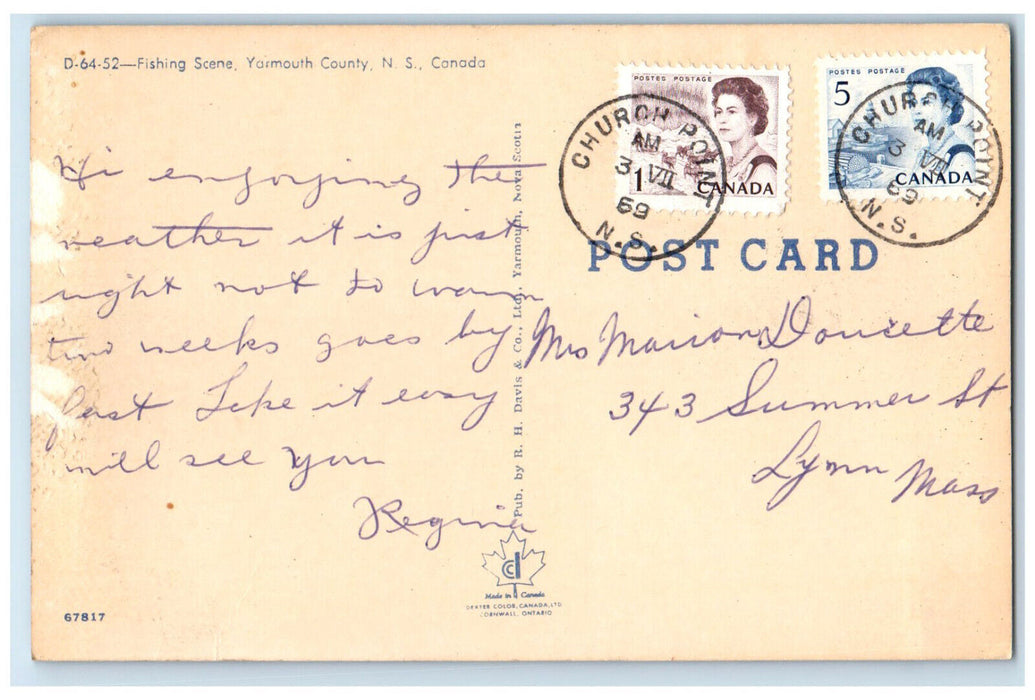 D-64-52—Fishing Scene, Yarmouth County, N. S., Canada
POSTES POSTAGE
1 CANADA
POSTES POSTAGE
5
CANADA
CHURCH POINT
AM
3 VII
69
N.S.
CHURCH POINT
AM
3 VII
69
N.S.
POST CARD
Hi enjoying the
weather it is just
right not to warm
two weeks goes by
fast Take it easy
will see you
Regina
Mrs Marion Doucette
343 Summer St
Lynn Mass
Pub. by R. H. Davis & Co., Ltd., Yarmouth, Nova Scotia
cd
Made in Canada
DEXTER COLOR, CANADA, LTD
CORNWALL, ONTARIO
67817